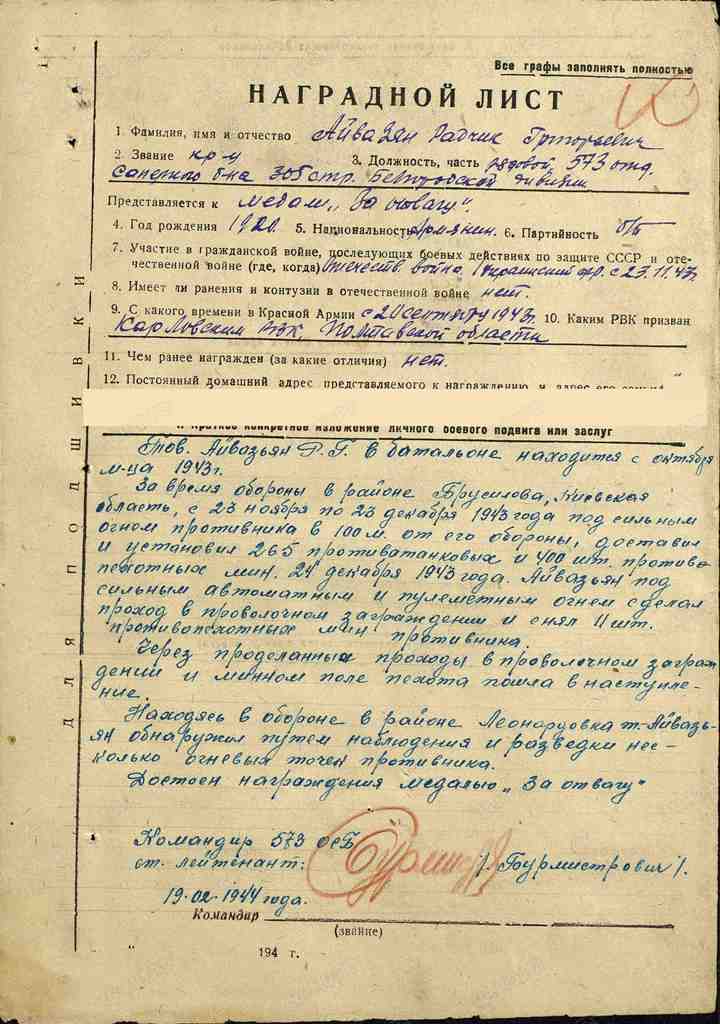 Все графы заполнять полностью
НАГРАДНОЙ ЛИСТ
1. Фамилия, имя и отчество Айвазян Радчик Григорьевич
2. Звание кр-ц 3. Должность, часть рядовой, 573 отд.
саперного б-на 305 стр. Белгородской дивизии
Представляется к медали „За отвагу".
4. Год рождения 1920 5. Национальность армянин. 6. Партийность б/п
7. Участие в гражданской войне, последующих боевых действиях по защите СССР и оте-
чественной войне (где, когда) Отечеств. война, 1 Украинский фр. с 23.11.43г.
8. Имеет ли ранения и контузии в отечественной войне нет.
9. С какого времени в Красной Армии с 20 сентября 1943г. 10. Каким РВК призван
Карловским РВК, Полтавской области
11. Чем ранее награжден (за какие отличия) нет.
12. Постоянный домашний адрес представляемого к награждению и адрес его семьи
I. Краткое конкретное изложение личного боевого подвига или заслуг
Тов. Айвазьян Р.Г. в батальоне находится с октября
м-ца 1943г.
За время обороны в районе Брусилова, Киевская
область, с 23 ноября по 23 декабря 1943 года под сильным
огнем противника в 100 м. от его обороны, доставил
и установил 265 противатанковых и 400 шт. противо-
пехотных мин. 24 декабря 1943 года. Айвазьян под
сильным автоматным и пулеметным огнем сделал
проход в проволочном заграждении и снял 11 шт.
противопехотных мин противника.
Через проделанных проходы в проволочном заграж-
дении и минном поле пехота пошла в наступле-
ние.
Находясь в обороне в районе Леонардовка т. Айвазь-
ян обнаружил путем наблюдения и разведки нес-
колько огневых точек противника.
Достоен награждения медалью „За отвагу"
Командир 573 ОСБ
ст. лейтенант: / Бурмистрович /.
19.02.1944 года.
Командир
(звание)
194 г.
ДЛЯ ПОДШИВКИ